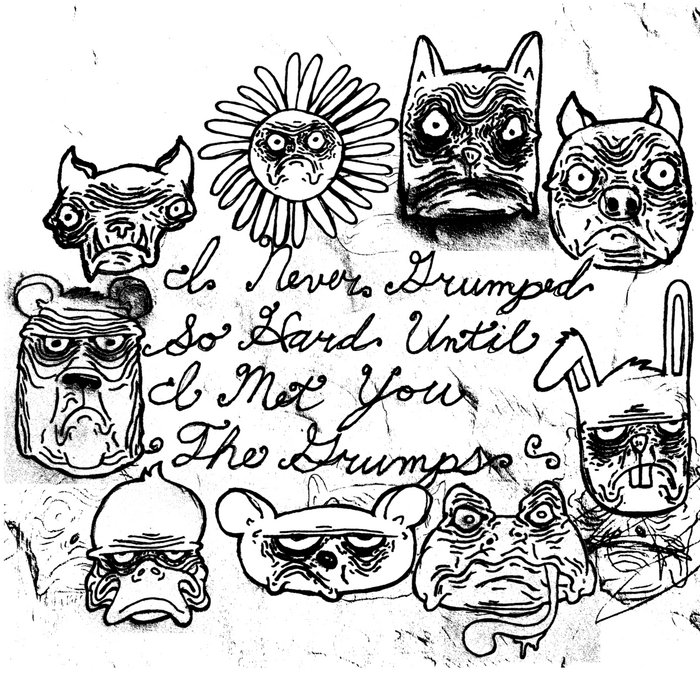 I Never Grumped
So Hard Until
I Met You
The Grumps